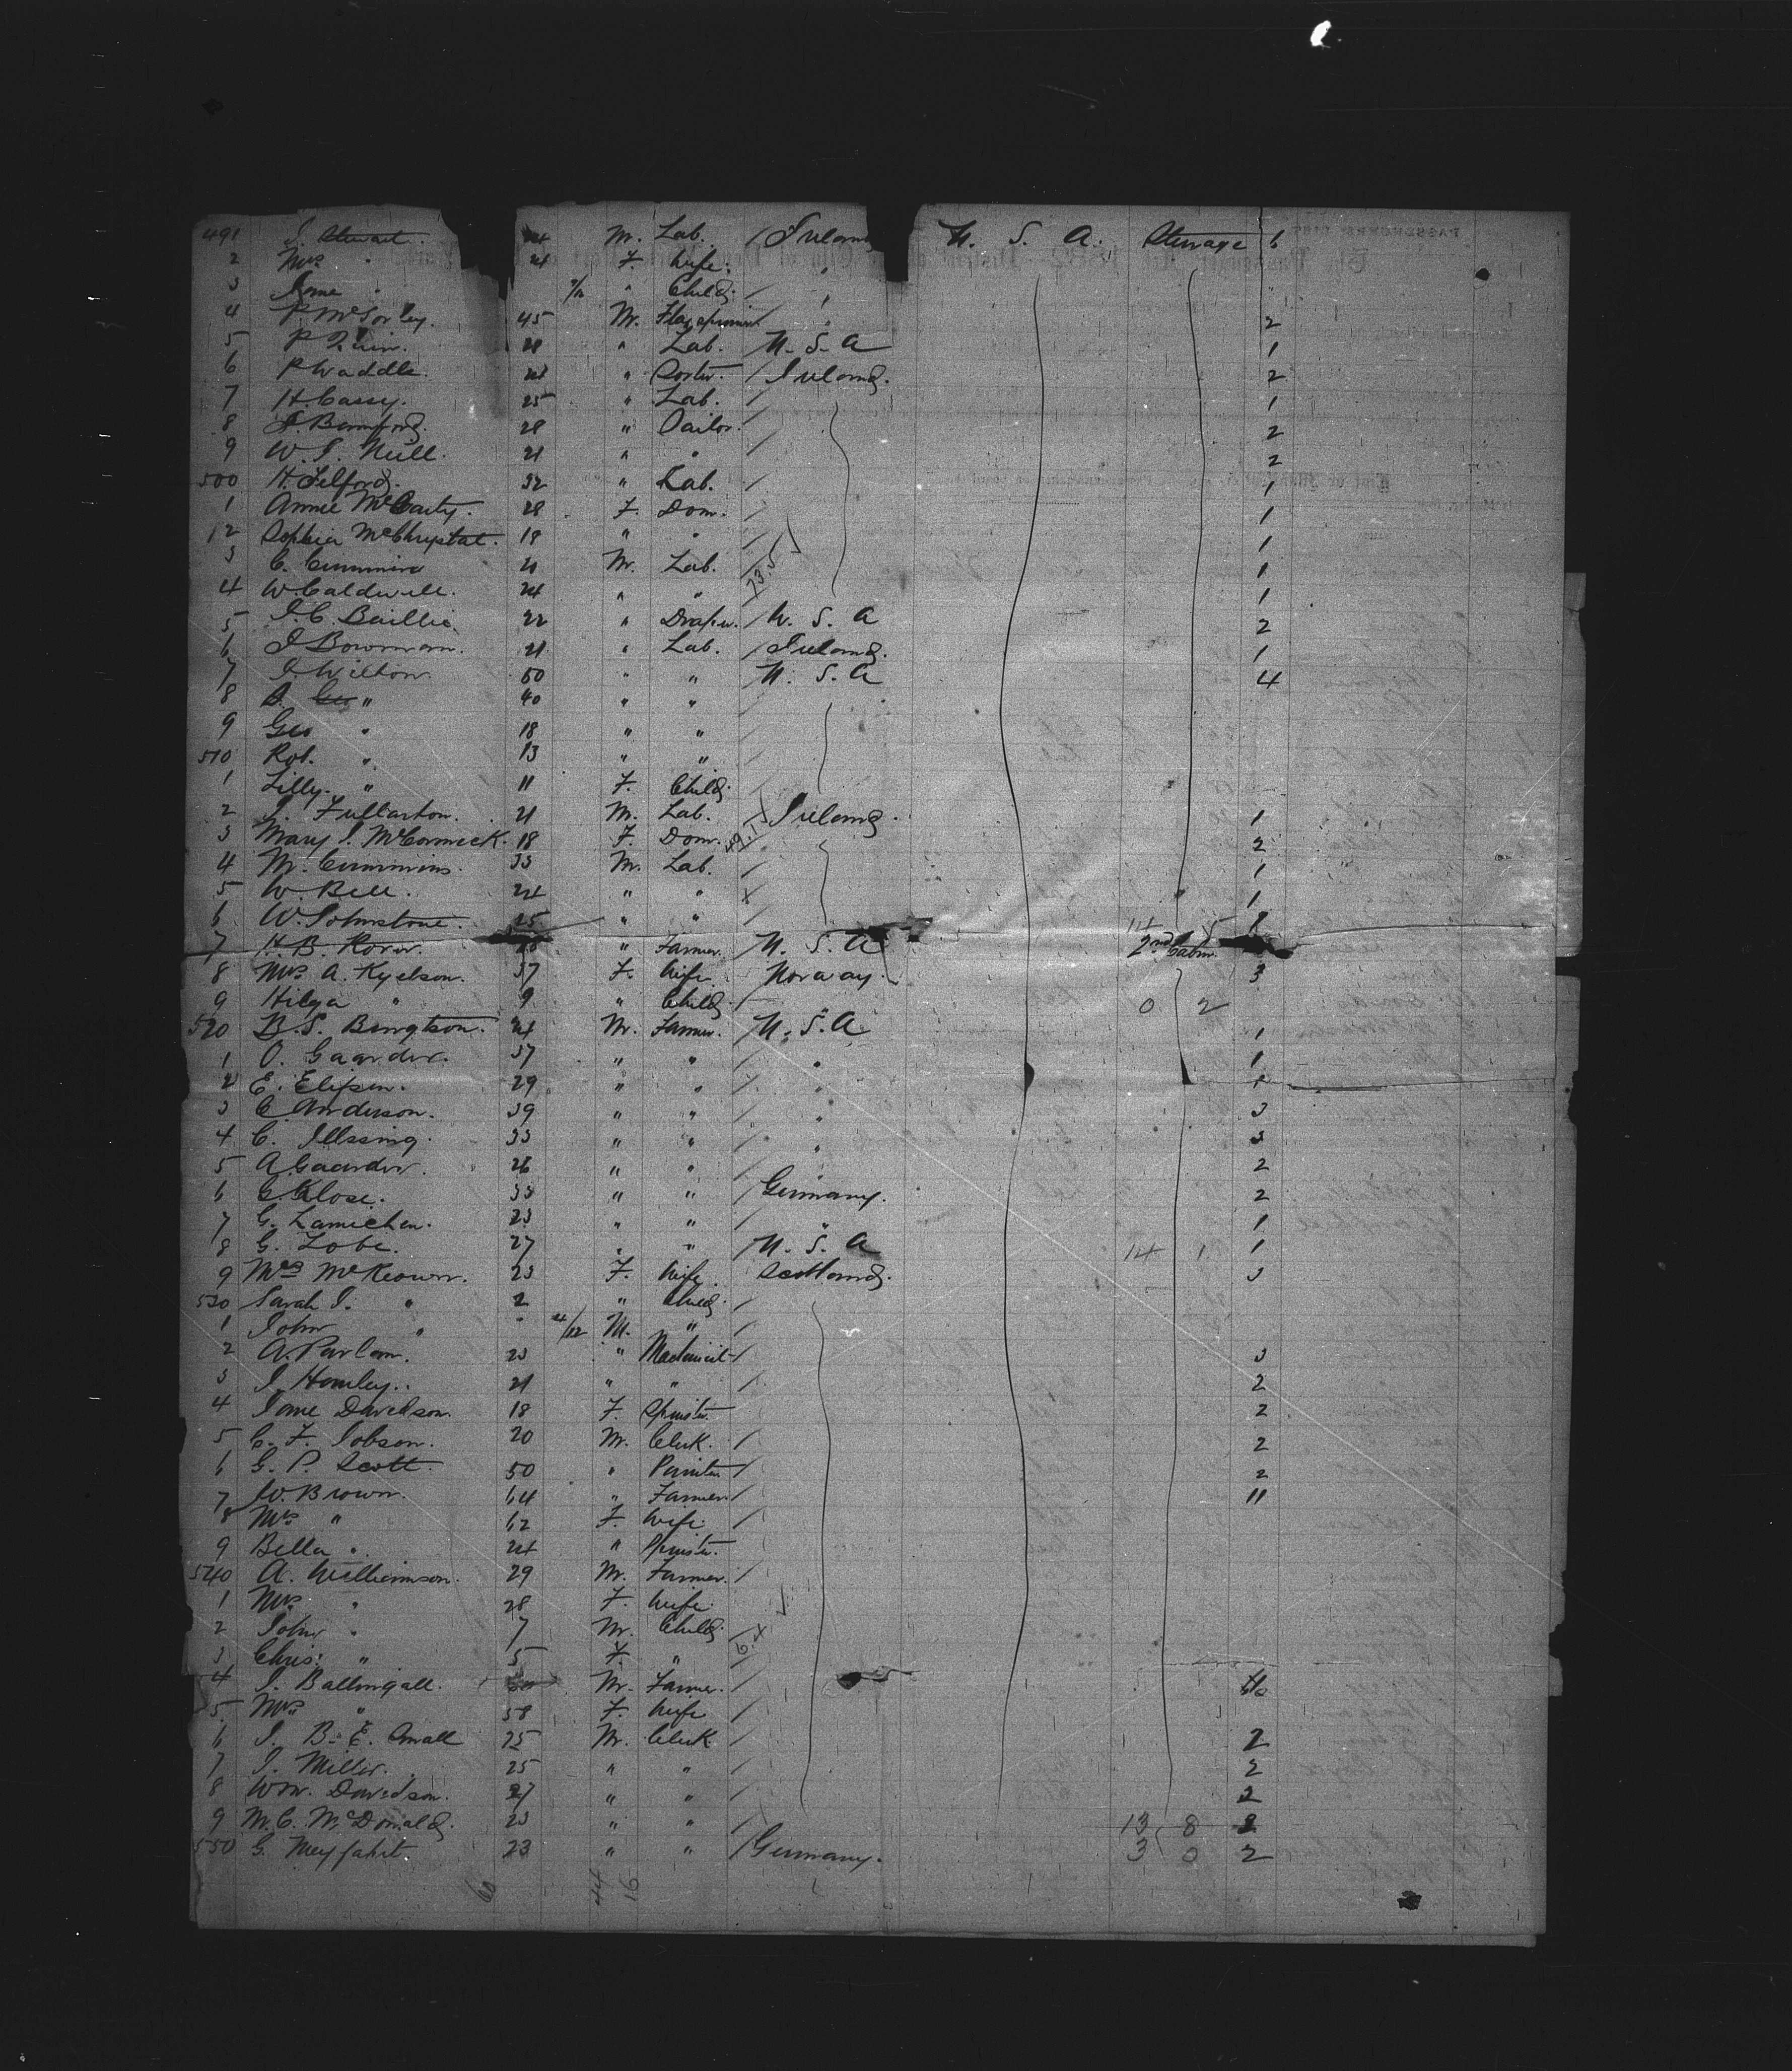 491 J. Stewart. 24 M. Lab. / Ireland U. S. A. Steerage 6
2 Mrs " 21 F. Wife. "
3 Jane " 7/12 " Child / "
4 P. McSorley. 45 M. / " 2
5 P. Quin. 28 " Lab. / U. S. A 1
6 P. Waddle. " Sorter. / Ireland. 2
7 H. Cassy. 25 " Lab. / 1
8 J. Bamford. 28 " Tailor. / 2
9 W. J. Neill. 21 " " / 2
500 H. Telford. 32 " Lab. / 1
1 Annie McCarty. 28 F. Dom. / 1
2 Sophia McChrystal. 18 " " / 1
3 C. Cummins 20 M. Lab. / 1
4 W. Caldwell. 24 " " / 1
5 J. C. Baillie. 22 " Draper. / U. S. A 2
6 J. Bowman. 21 " Lab. / Ireland. 1
7 J. Wilton 50 " " / U. S. A 4
8 " 40 " " /
9 Geo " 18 " " /
510 Rob. " 13 " " /
1 Lilly. " 11 F. Child. /
2 J. Fullarton. 21 M. Lab. / Ireland. 1
3 Mary J. McCormick. 18 F. Dom. 2
4 M. Cummins. 33 M. Lab. / 1
5 W. Bell. 24 " " 1
6 W. Johnstone. 25 " " / 1
7 H. B. " Farmer. / U. S. A 2nd Cabin.
8 Mrs A. Kyelson. 37 F. Wife. Norway. 3
9 Hilga " 9 " Child / " 0 2
520 B. S. Bengtson. 24 M. Farmer. / U. S. A. 1
1 O. Gaarder. 37 " " / " 1
2 E. Elipsen. 29 " " / " 1
3 C. Anderson. 39 " " / " 3
4 C. Illssing. 33 " " / " 3
5 A. Gaarder. 26 " " / 2
6 C. Close. 33 " " / Germany. 2
7 G. Lamichen. 23 " " / " 1
8 G. Lobe. 27 " " / U. S. A 14 1 1
9 Mrs McKeown. 23 F. Wife. Scotland. 3
530 Sarah J. " 2 " Child /
1 John " " M. " /
2 A. Parlam. 23 " Machinist / 3
3 J. Hamley. 21 " " / 2
4 Jane Davidson. 18 F. Spinster. 2
5 C. F. Jobson. 20 M. Clerk. / 2
6 G. P. Scott. 50 " Painter / 2
7 W. Brown. 64 " Farmer / 11
8 Mrs " 62 F. Wife. /
9 Bella " 24 " Spinster.
540 A. Williamson. 29 M. Farmer. /
1 Mrs " 28 F. Wife.
2 John " 7 M. Child. /
3 Chris: " 5 F. "
4 J. Ballingall. M. Farmer. /
5 Mrs " 58 F. Wife /
6 J. B. E. Small 25 M. Clerk / 2
7 J. Miller. 25 " " / 2
8 Wm. Davidson. 27 " " / 2
9 M. C. McDonald. 23 " " 13 8 2
550 G. Meyfahrt 23 " " / Germany. 3 0 2
60 44 16